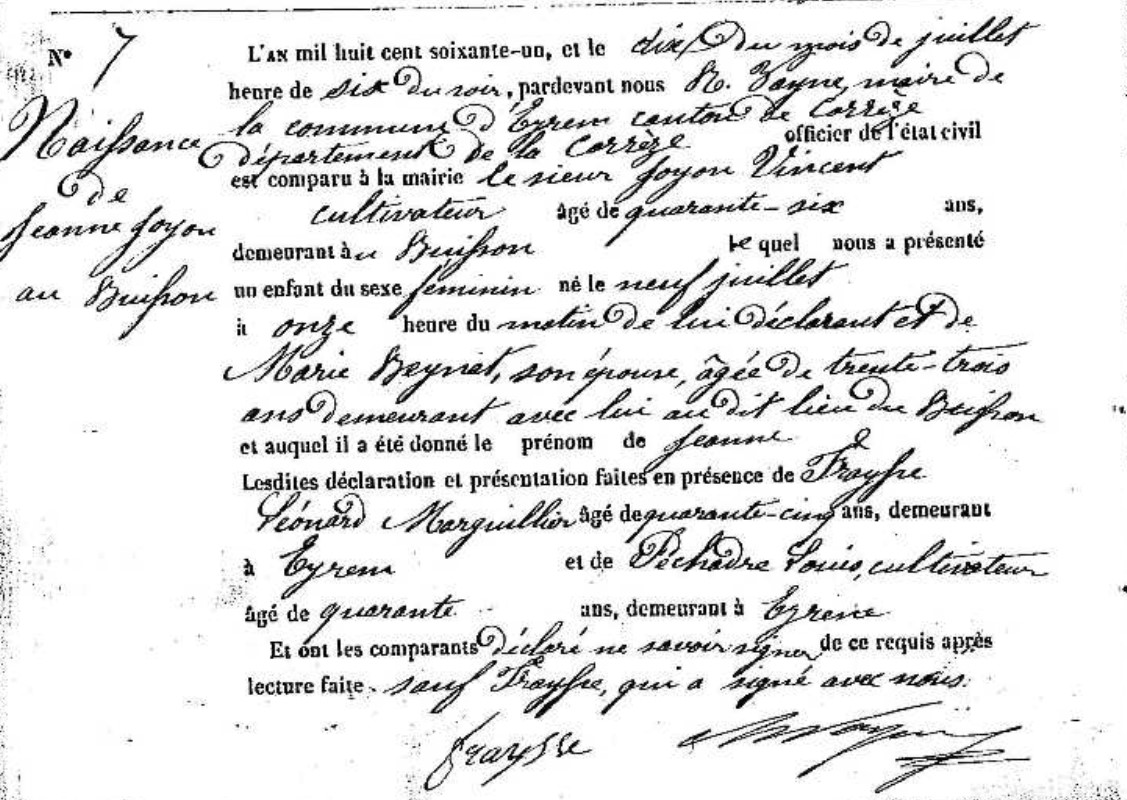 N° 7
Naissance
de
Jeanne Joyon
au Buisson
L'AN mil huit cent soixante-un, et le dix du mois de juillet
heure de six du soir, pardevant nous N. Vayne, maire de
la commune d'Eyrem canton de Corrèze
département de la Corrèze officier de l'état civil
est comparu à la mairie le sieur Joyon Vincent
cultivateur âgé de quarante-six ans,
demeurant au Buisson lequel nous a présenté
un enfant du sexe féminin né le neuf juillet
à onze heure du matin de lui déclarant et de
Marie Beynat, son épouse, âgée de trente-trois
ans demeurant avec lui au dit lieu du Buisson
et auquel il a été donné le prénom de Jeanne
Lesdites déclaration et présentation faites en présence de Traysse
Léonard Marguillier âgé de quarante-cinq ans, demeurant
à Eyrem et de Péchadre Louis, cultivateur
âgé de quarante ans, demeurant à Eyrem
Et ont les comparants déclaré ne savoir signer de ce requis après
lecture faite. sauf Traysse, qui a signé avec nous.
fraysse